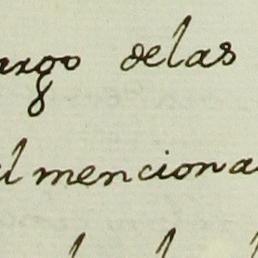 argo delas
el menciona